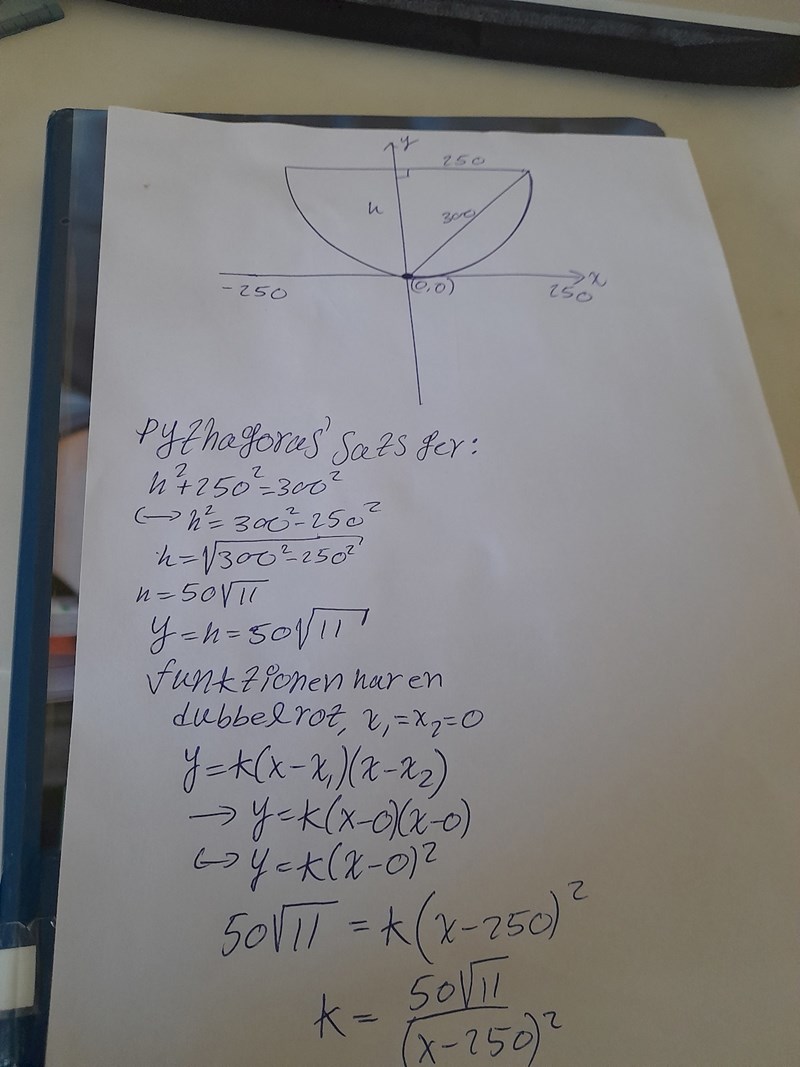 y
250
h
300
x
-250
(0,0)
250
Pythagoras' sats ger:
h²+250²=300²
↔ h²=300²-250²
h=√(300²-250²)
h=50√11
y=h=50√11
funktionen har en
dubbelrot, x₁=x₂=0
y=k(x-x₁)(x-x₂)
→ y=k(x-0)(x-0)
↔ y=k(x-0)²
50√11 = k(x-250)²
k= 50√11 / (x-250)²